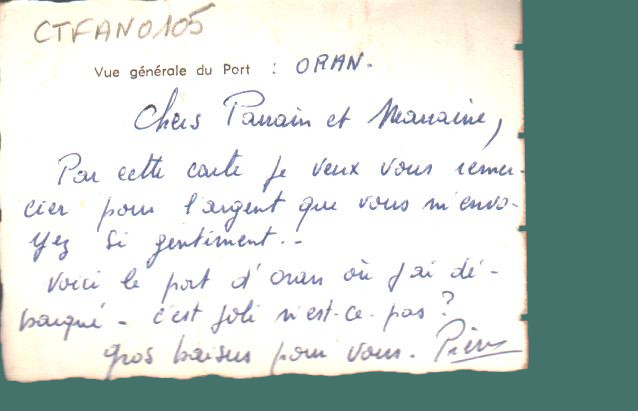 CTFAN0105
Vue générale du Port : ORAN.
Chers Parrain et Marraine,
Par cette carte je veux vous remer-
cier pour l'argent que vous m'envo-
yez si gentiment..
Voici le port d'oran où j'ai dé-
barqué - c'est joli n'est-ce-pas ?
gros baisers pour vous.